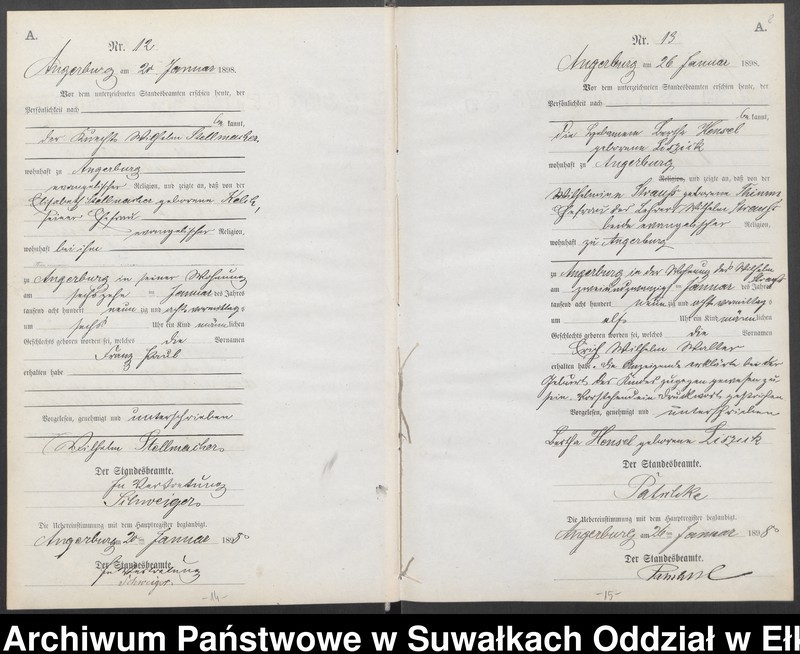 A.
Nr. 12
Angerburg am 20 Januar 1898.
Vor dem unterzeichneten Standesbeamten erschien heute, der
Persönlichkeit nach
be kannt,
der Knecht Wilhelm Stellmacher
wohnhaft zu Angerburg
evangelischer Religion, und zeigte an, daß von der
Elisabeth Stellmacher geborene
seiner Ehefrau
evangelischer Religion,
wohnhaft bei ihm
zu Angerburg in seiner Wohnung
am sechszehn ten Januar des Jahres
tausend acht hundert neun zig und acht vormittags
um sechs Uhr ein Kind männ lichen
Geschlechts geboren worden sei, welches die Vornamen
Franz Paul
erhalten habe
Vorgelesen, genehmigt und unterschrieben
Wilhelm Stellmacher
Der Standesbeamte.
In Vertretung
Schweiger
Die Uebereinstimmung mit dem Hauptregister beglaubigt.
Angerburg am 20 ten Januar 1898
Der Standesbeamte.
In Vertretung
Schweiger
-14-
A.
Nr. 13
Angerburg am 26 Januar 1898.
Vor dem unterzeichneten Standesbeamten erschien heute, der
Persönlichkeit nach
be kannt,
die Hebamme Bertha Hensel
geborene
wohnhaft zu Angerburg
Religion, und zeigte an, daß von der
Wilhelmine Strauß geborene
Ehefrau des Lehrers Wilhelm Strauß
beide evangelischer Religion,
wohnhaft zu Angerburg
zu Angerburg in der Wohnung des Wilhelm
Strauß
am zweiundzwanzig ten Januar des Jahres
tausend acht hundert neun zig und acht vormittags
um elf Uhr ein Kind männ lichen
Geschlechts geboren worden sei, welches die Vornamen
Erich Wilhelm Walter
erhalten habe. Die Anzeigende erklärte bei der
Geburt des Kindes zugegen gewesen zu
sein. Vorstehend ein Druckwort gestrichen.
Vorgelesen, genehmigt und unterschrieben
Bertha Hensel geborene
Der Standesbeamte.
Die Uebereinstimmung mit dem Hauptregister beglaubigt.
Angerburg am 26 ten Januar 1898
Der Standesbeamte.
-15-
Archiwum Państwowe w Suwałkach Oddział w Ełk